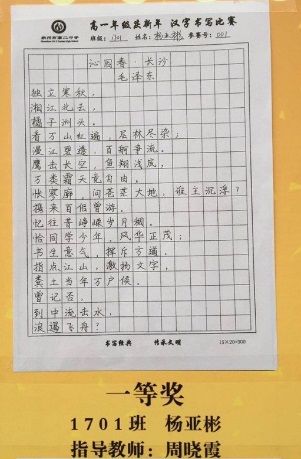 高一年级庆新年 汉字书写比赛
班级: 1701 姓名: 杨亚彬 参赛号: 001
沁园春·长沙
毛泽东
独立寒秋,
湘江北去,
橘子洲头。
看万山红遍,层林尽染;
漫江碧透,百舸争流。
鹰击长空,鱼翔浅底,
万类霜天竞自由。
怅寥廓,问苍茫大地,谁主沉浮?
携来百侣曾游,
忆往昔峥嵘岁月稠。
恰同学少年,风华正茂;
书生意气,挥斥方遒。
指点江山,激扬文字,
粪土当年万户侯。
曾记否,
到中流击水,
浪遏飞舟?
书写经典 传承文明 15×20=300
一等奖
1701班 杨亚彬
指导教师:周晓霞